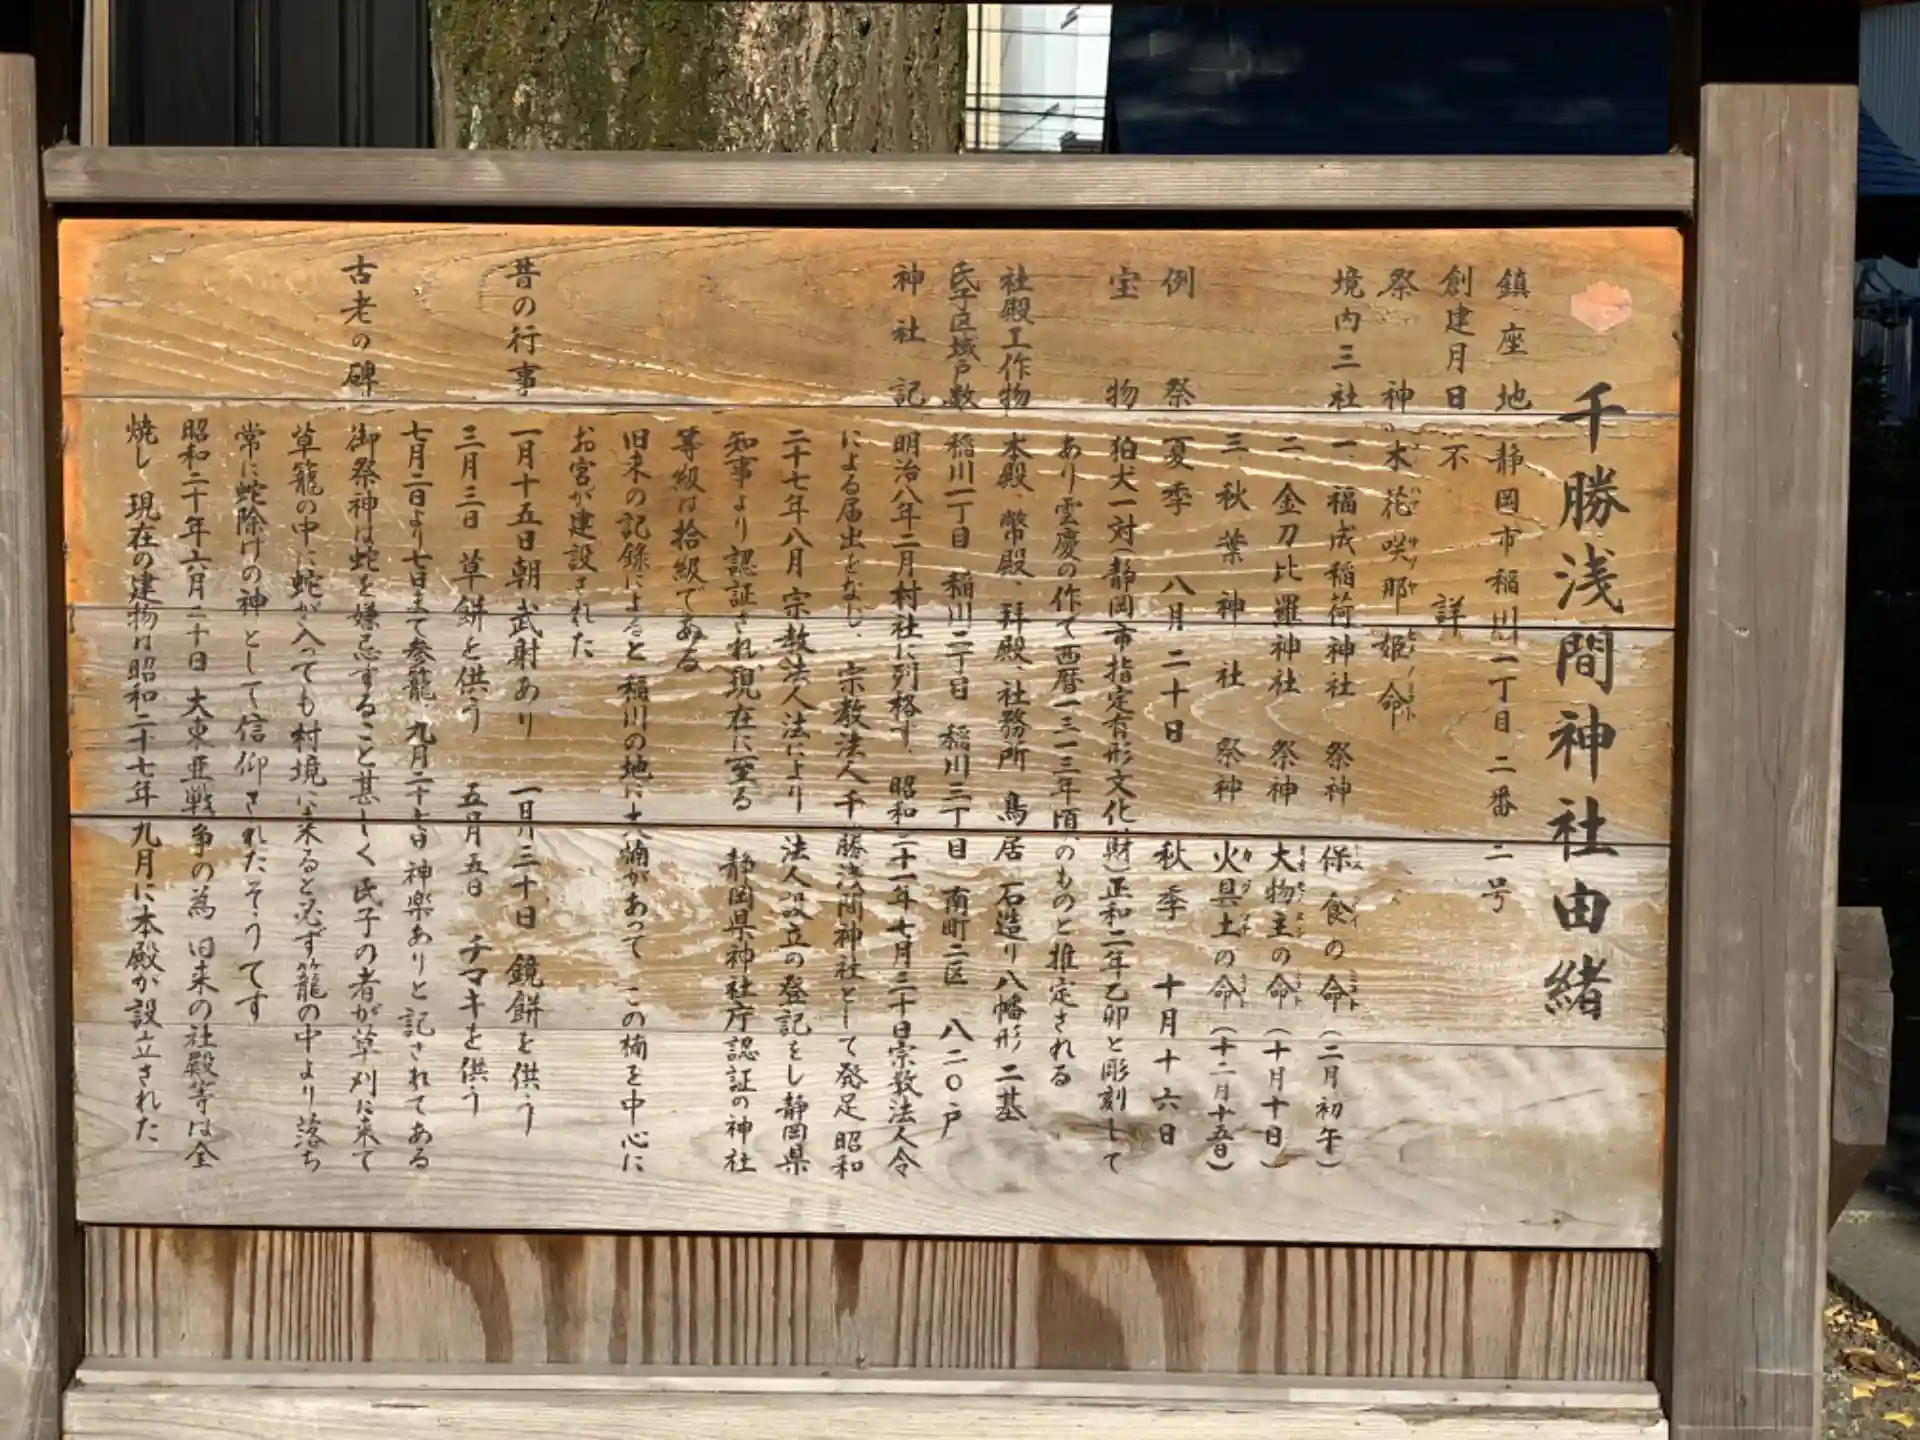 千勝浅間神社由緒
鎮座地 静岡市稲川一丁目二番二号
創建月日 不詳
祭神 木花咲耶姫ノ命
境内三社 一、福成稲荷神社 祭神 保食の命(二月初午)
二 金刀比羅神社 祭神 大物主の命(十月十日)
三 秋葉神社 祭神 火具土の命(十二月十五日)
例祭 夏季 八月二十日 秋季 十月十六日
宝物 狛犬一対(静岡市指定有形文化財)正和二年乙卯と彫刻して
あり雲慶の作で西暦一三一三年頃のものと推定される
社殿工作物 本殿、幣殿、拝殿、社務所 鳥居 石造り八幡形二基
氏子区域戸数 稲川一丁目 稲川二丁目 稲川三丁目 南町二区 八二〇戸
神社記 明治八年二月村社に列格す、昭和二十一年七月三十日宗教法人令
による届出をなし、宗教法人千勝浅間神社として発足昭和
二十七年八月宗教法人法により 法人設立の登記をし静岡県
知事より認証され現在に至る 静岡県神社庁認証の神社
等級は拾級である
旧来の記録によると稲川の地に大楠があって この楠を中心に
お宮が建設された
昔の行事 一月十五日朝 武射あり 一日月三十日 鏡餅を供う
三月三日 草餅を供う 五月五日 チマキを供う
七月二日より七日まで参籠 九月二十七日神楽ありと記されてある
古老の碑 御祭神は蛇を嫌忌すること甚しく 氏子の者が草刈に来て
草籠の中に蛇が入っても村境に来ると必ず籠の中より落ち
常に蛇除けの神として信仰されたそうです
昭和二十年六月二十日 大東亜戦争の為 旧来の社殿等は全
焼し 現在の建物は昭和二十七年九月に本殿が設立された